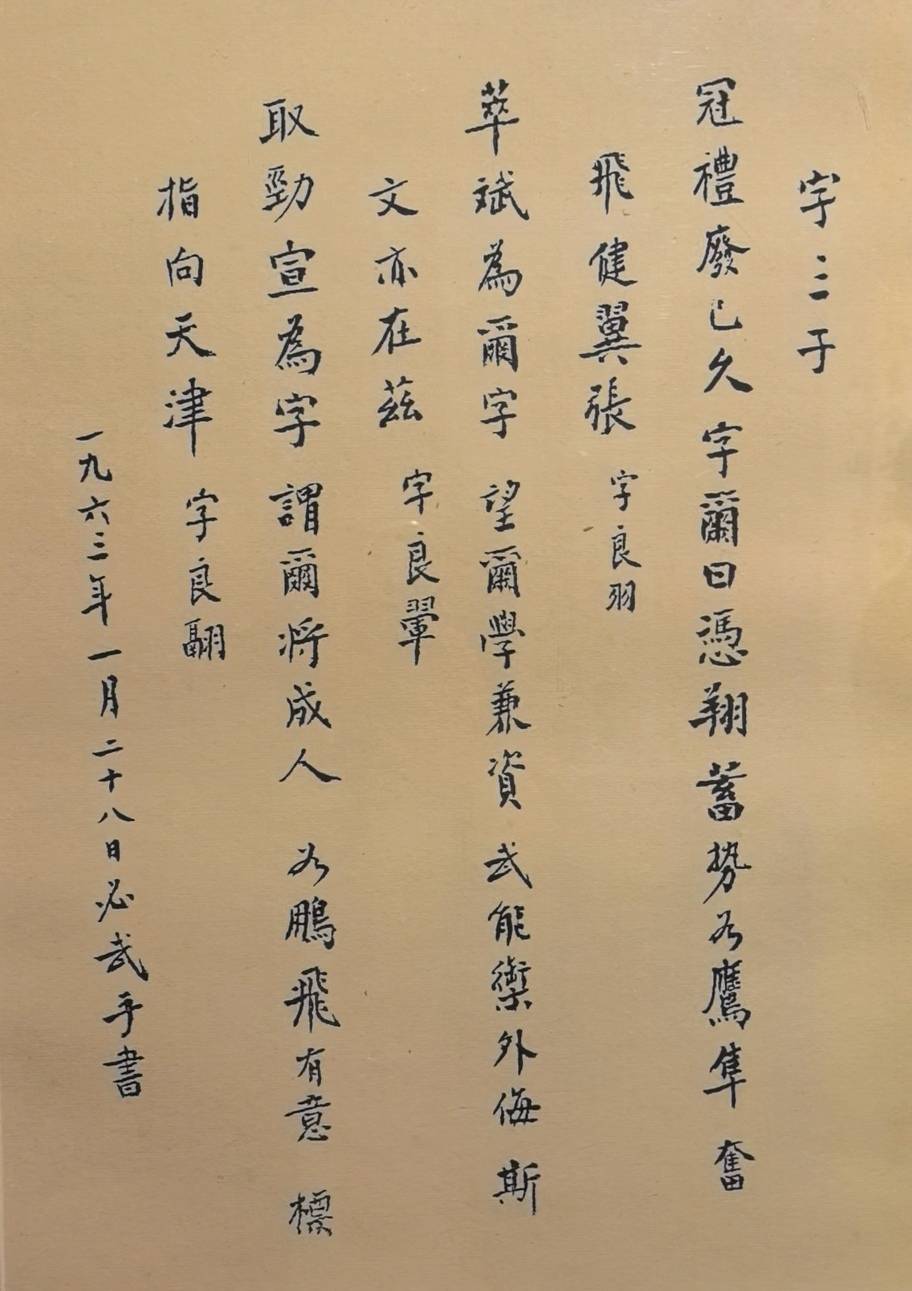 字三子
冠禮廢已久字爾曰憑翔蓄勢如鷹隼奮
飛健翼張 字良羽
萃斌為爾字 望爾學兼資 武能禦外侮 斯
文亦在茲 字良翬
取勁宣為字 謂爾將成人 如鵬飛有意 標
指向天津 字良翮
一九六三年一月二十八日必武手書